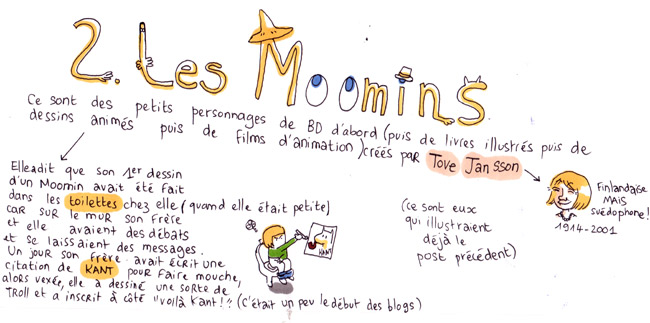 2. Les Moomins
Ce sont des petits personnages de BD d'abord (puis de livres illustrés puis de
dessins animés puis de films d'animation) créés par Tove Jansson
Elle a dit que son 1er dessin
d'un Moomin avait été fait
dans les toilettes chez elle (quand elle était petite)
car sur le mur son frère
et elle avaient des débats
et se laissaient des messages.
Un jour son frère avait écrit une
citation de KANT pour faire mouche,
alors vexée, elle a dessiné une sorte de
Troll et a inscrit à côté "voilà Kant!!" (c'était un peu le début des blogs)
KANT
(ce sont eux
qui illustraient
déjà le
post précédent)
Finlandaise
MAIS
suédophone!
1914-2001